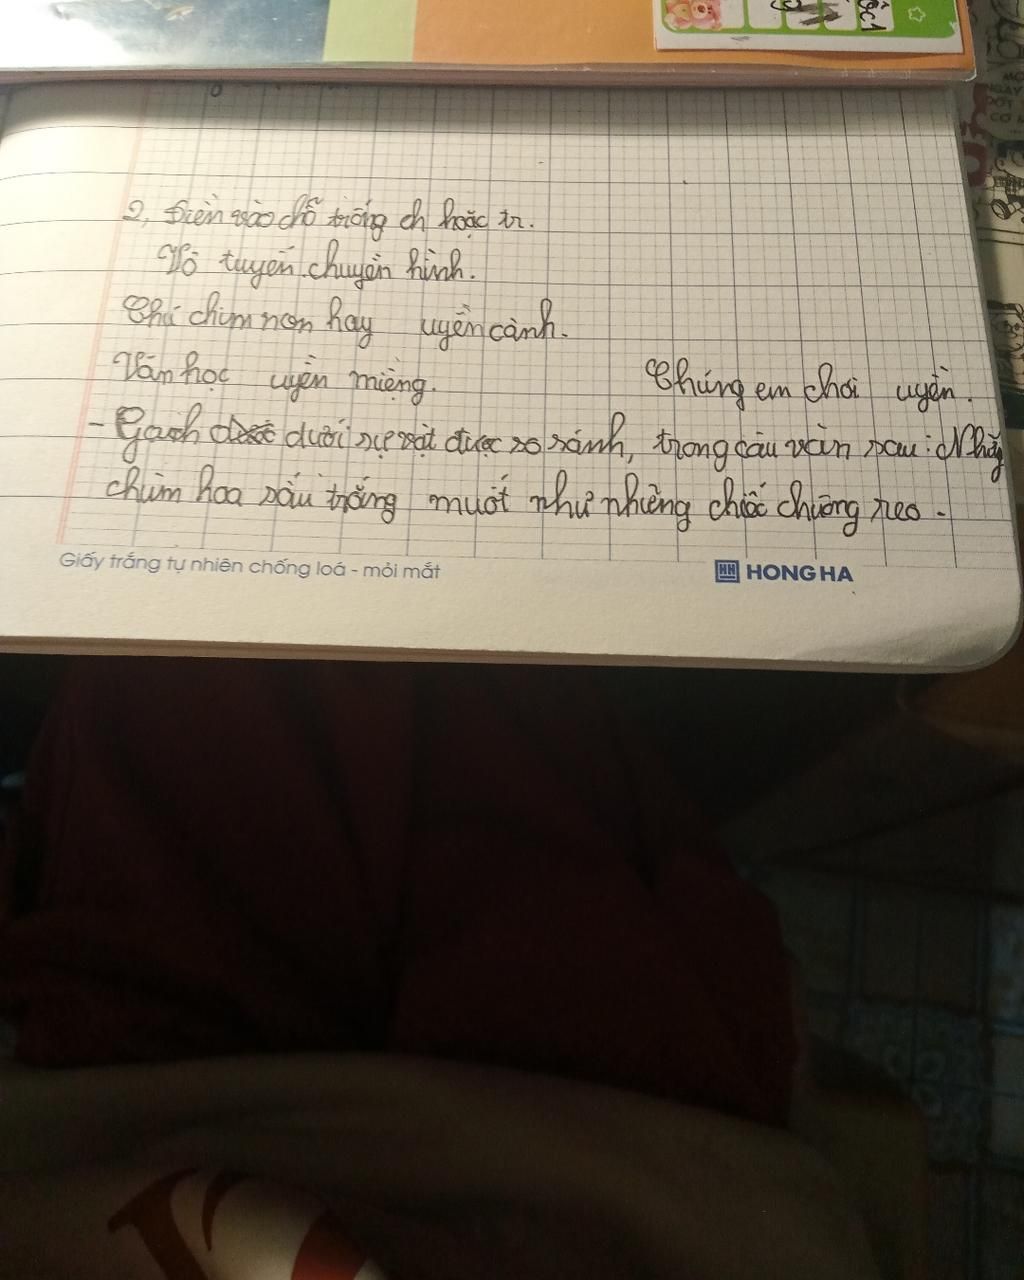 2, Điền vào chỗ trống ch hoặc tr.
Vô tuyến chuyền hình.
Chú chim non hay uyền cành.
Văn học uyền miệng. Chúng em chơi uyền.
- Gạch dưới sự vật được so sánh, trong câu văn sau: Nhữg
chùm hoa sấu trắng muốt như nhưng chiếc chuông reo.
Giấy trắng tự nhiên chống loá - mỏi mắt
HH HONG HA